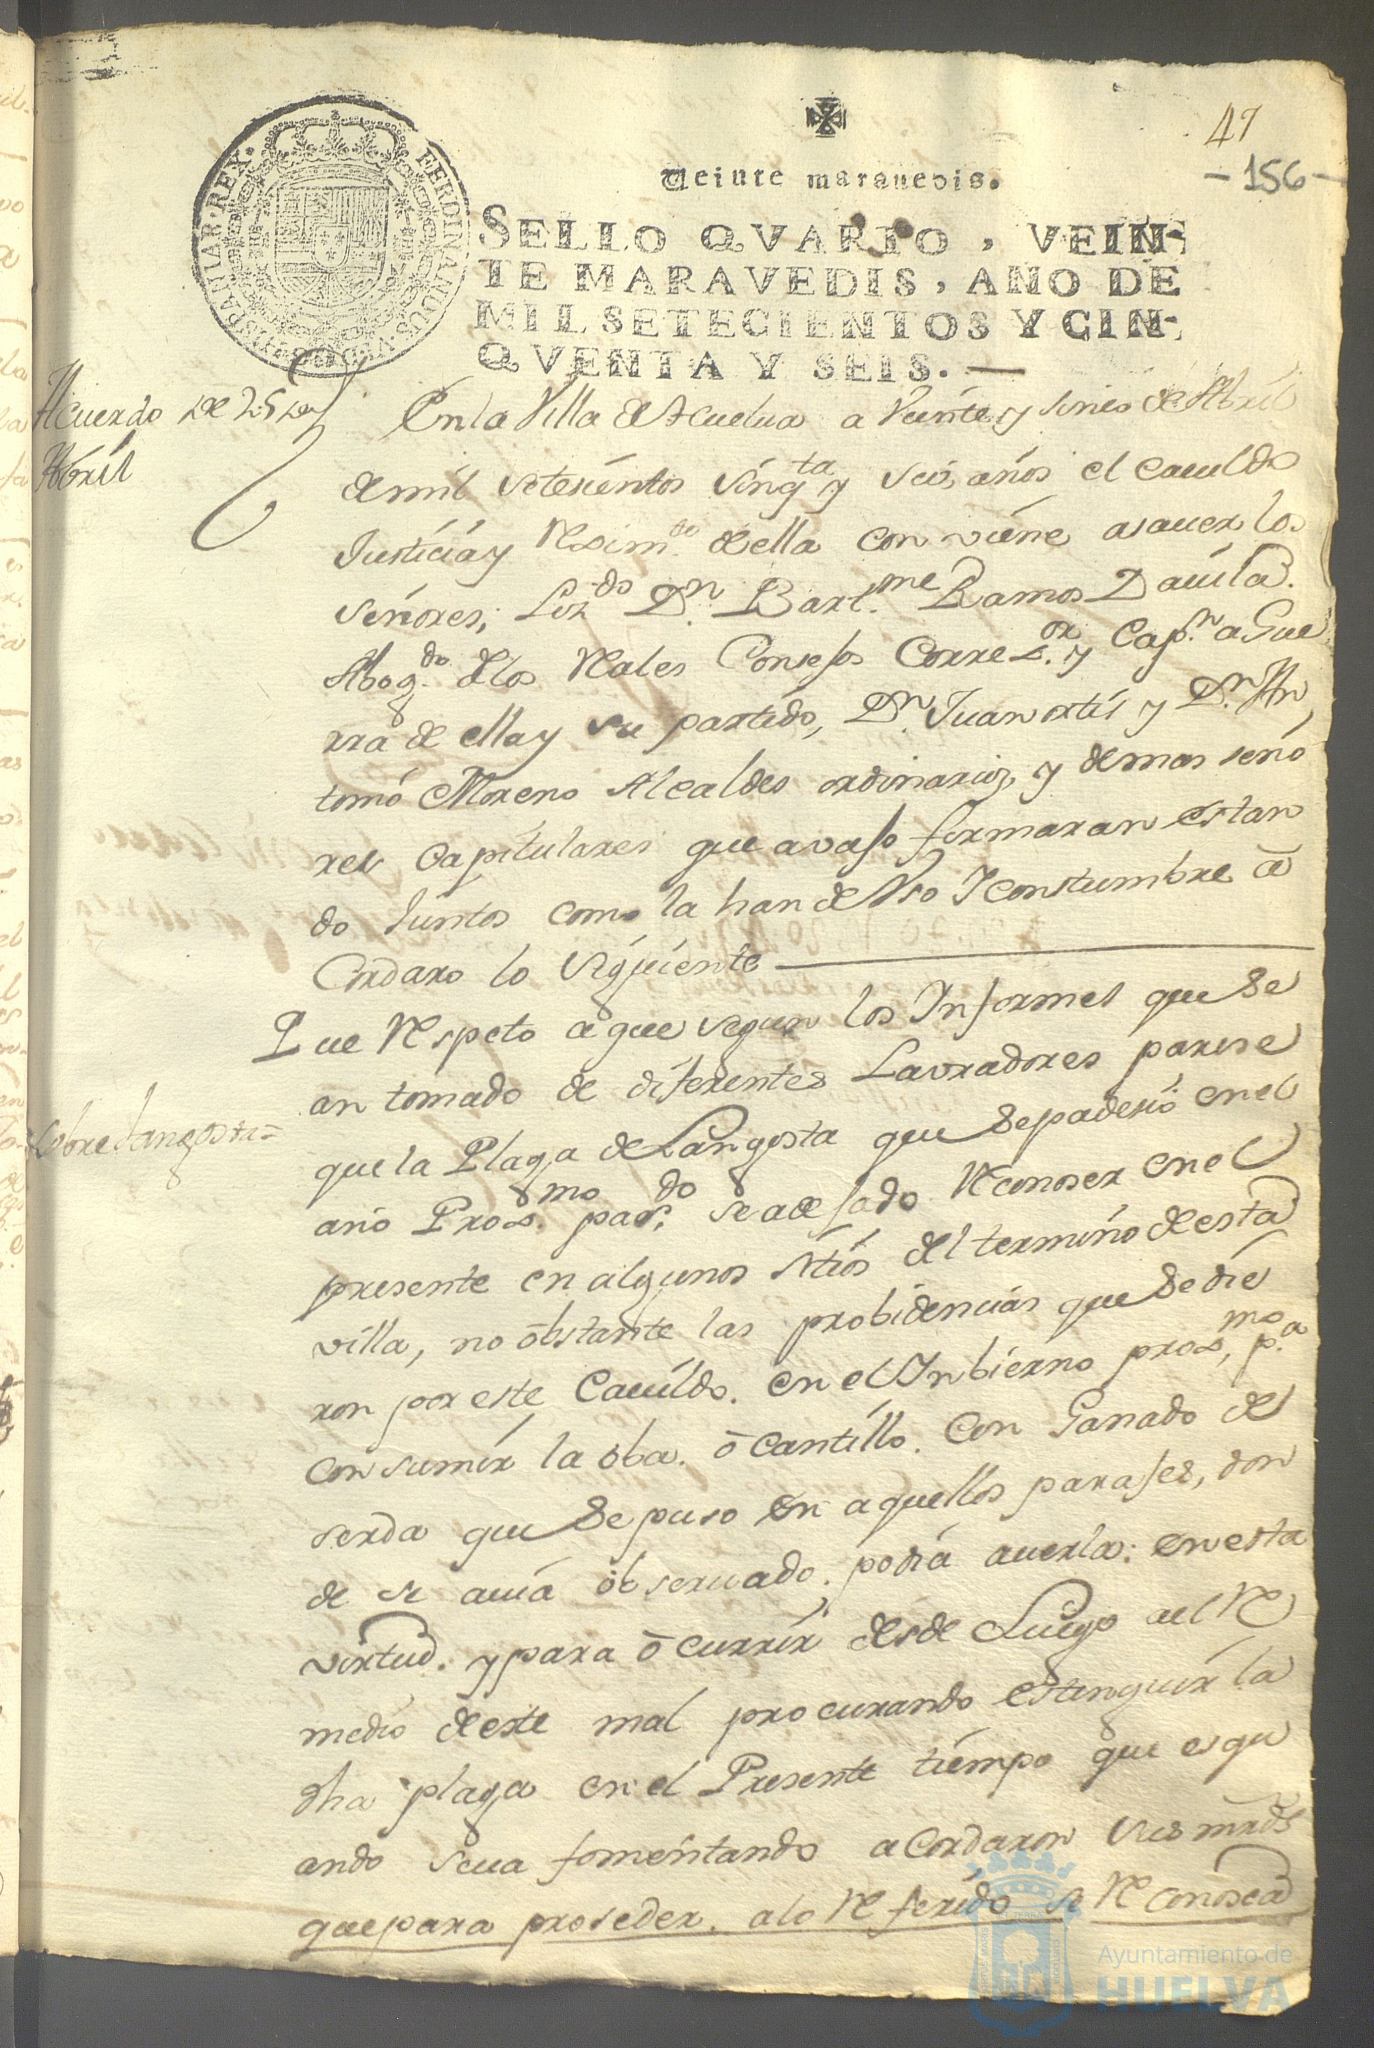 47
-156-
Veinte maravedis.
SELLO QVARTO, VEIN-
TE MARAVEDIS, AÑO DE
MIL SETECIENTOS Y CIN-
QVENTA Y SEIS.
FERDINANDUS VI D G HISPANIAR REX
Acuerdo de 25 de
Abril
En la Villa de Huelua a Veinte y sinco de Abril
de mil setesientos sinq.ta y seis años el cauildo
Justicia y Reximto. de ella conviene asauer los
señores, Lizdo. Dn. Bartme. Ramos Dauila.
Abogdo. de los Reales Consejos Corregor. y Capn. a Gue
rra de ella y su partido, Dn. Juan ortis y Dn. An
tonio Moreno Alcaldes ordinarios y demas seño
res Capitulares que avajo firmaran estan
do Juntos como la han de Vso Y constumbre a
Cordaro lo siguiente
Que Respeto a que segun los Informes que se
an tomado de diferentes Lauradores parese
Sobre Langosta=
que la Plaga de Langosta que se padesio en el
año Proxmo. pasdo. se a dejado Reconoser en el
presente en algunos sitios del termino de esta
villa, no obstante las probidencias que se die
ron por este Cauildo. en el Inbierno proxmo, pa.
consumir la oba. o cantillo. Con Ganado de
serda que se puso en aquellos parajes, don
de se auia obseruado, podia auerla: en esta
virtud. y para ocurrir desde Luego al Re
medio deste mal procurando estinguir la
dha plaga en el Presente tiempo que es qu
ando se ua fomentando acordaron sus mrds
que para proseder. a lo Referido se Reconosca
Ayuntamiento de
HUELVA